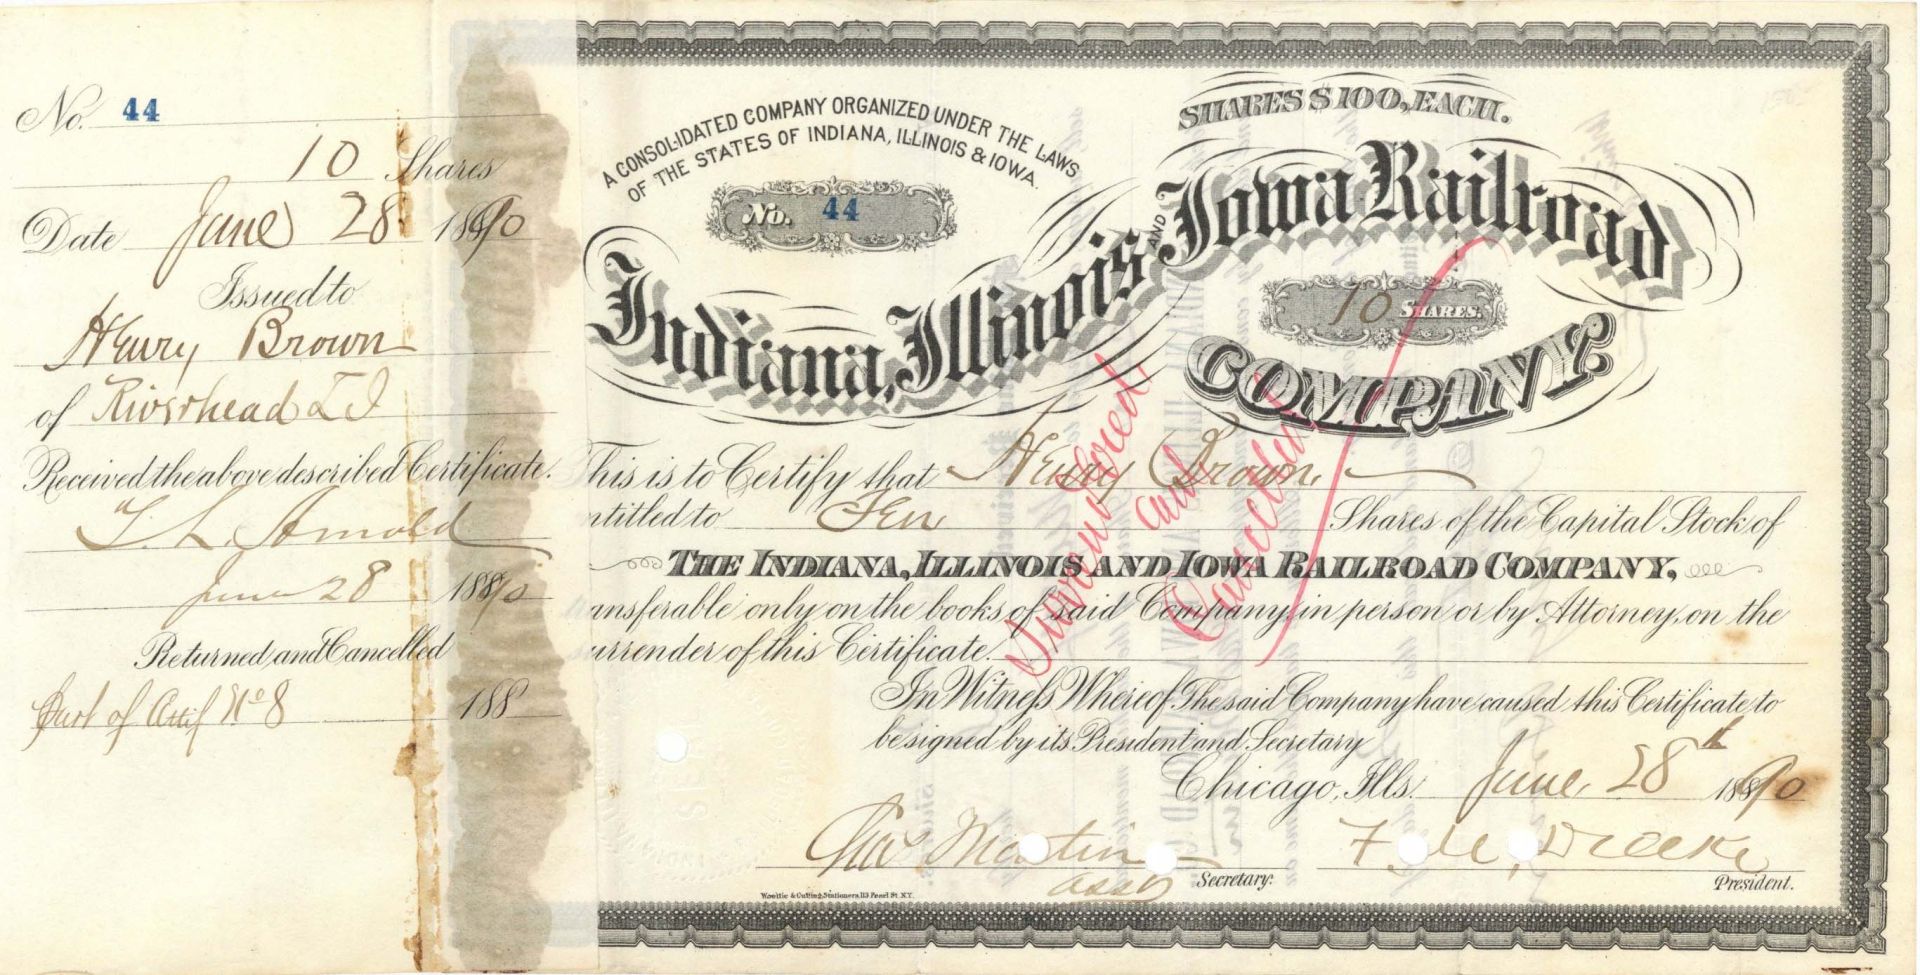 No. 44
10 Shares
Date June 28 1890
Issued to
Henry Brown
of Riverhead L I
Received the above described Certificate.
T. L. Arnold
June 28 1890
Returned and Cancelled
Part of Ctif No 8 188
A CONSOLIDATED COMPANY ORGANIZED UNDER THE LAWS
OF THE STATES OF INDIANA, ILLINOIS & IOWA.
No. 44
SHARES $100, EACH.
Indiana, Illinois AND Iowa Railroad
10 SHARES.
COMPANY.
This is to Certify that Henry Brown
ntitled to Ten Shares of the Capital Stock of
THE INDIANA, ILLINOIS AND IOWA RAILROAD COMPANY,
ansferable only on the books of said Company, in person or by Attorney, on the
urrender of this Certificate.
Surrendered
and
Cancelled
In Witness Whereof The said Company have caused this Certificate to
be signed by its President and Secretary
Chicago, Ills. June 28th 1890
Martin
asst Secretary.
F. M. Drake
President.
& Cutting, Stationers 113 Pearl St. N.Y.